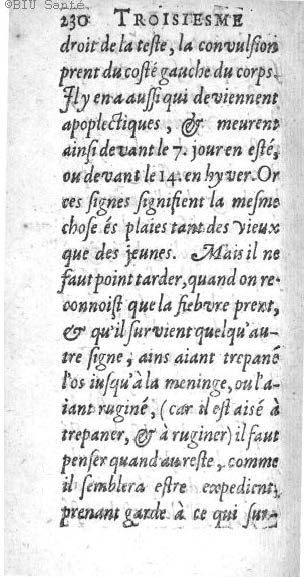 ©BIU Santé
230 TROISIESME
droit de la teste, la convulsion
prent du costé gauche du corps.
Il y en a aussi qui deviennent
apoplectiques, & meurent
ainsi devant le 7. jour en esté,
ou devant le 14. en hyver. Or
ces signes signifient la mesme
chose és plaies tant des vieux
que des jeunes. Mais il ne
faut point tarder, quand on re-
connoist que la fiebvre prent,
& qu'il survient quelqu'au-
tre signe; ains aiant trepané
l'os iusqu'à la meninge, ou l'a-
iant ruginé, (car il est aisé à
trepaner, & à ruginer) il faut
penser quand au reste, comme
il semblera estre expedient,
prenant garde à ce qui sur-